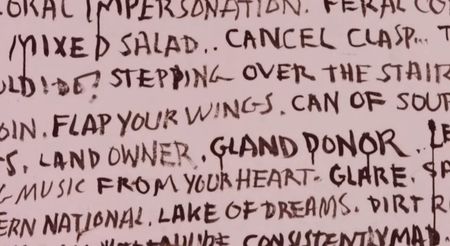 IMPERSONATION. FERAL CO
MIXED SALAD.. CANCEL CLASP... T
STEPPING OVER THE STAIR
OIN. FLAP YOUR WINGS. CAN OF SOUP
S. LAND OWNER. GLAND DONOR. LE
G MUSIC FROM YOUR HEART. GLARE. SA
ERN NATIONAL. LAKE OF DREAMS. DIRT R
CONSISTENTLY MAD.